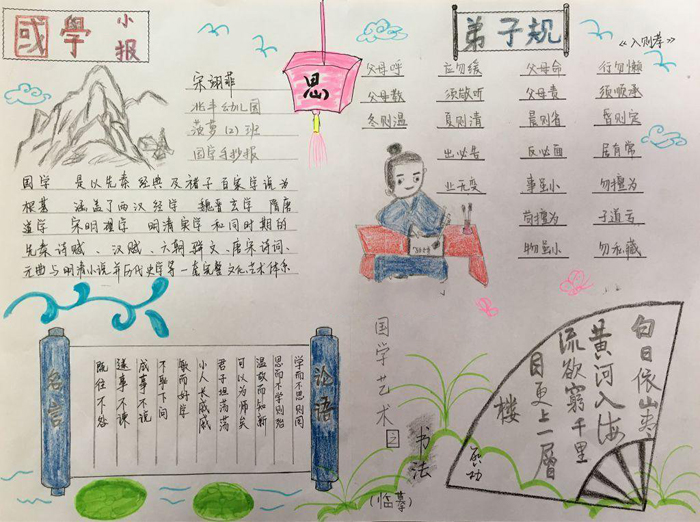 國學小报
思
宋诩菲
北丰幼儿园
菠萝(2)班
国学手抄报
国学 是以先秦经典及诸子百家学说为
根基 涵盖了两汉经学 魏晋玄学 隋唐
道学 宋明理学 明清实学和同时期的
先秦诗赋、汉赋、六朝骈文、唐宋诗词、
元曲与明清小说并历代史学等一套完整文化、艺术体系
弟子规
《入则孝》
父母呼 应勿缓 父母命 行勿懒
父母教 须敬听 父母责 须顺承
冬则温 夏则清 晨则省 昏则定
出必告 反必面 居有常
业无变 事虽小 勿擅为
苟擅为 子道亏
物虽小 勿私藏
论语
学而不思则罔
思而不学则殆
温故而知新
可以为师矣
君子坦荡荡
小人长戚戚
敏而好学
不耻下问
成事不说
遂事不谏
既往不咎
名言
国学艺术之
书法
(临摹)
白日依山尽
黄河入海
流欲穷千里
目更上一層
楼
启功